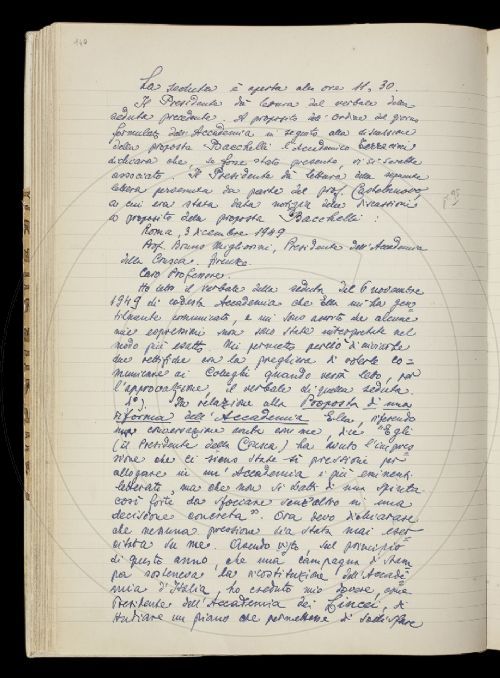 140
La seduta è aperta alle ore 11.30.
Il Presidente dà lettura del verbale della
seduta precedente. A proposito dell'ordine del giorno
formulato dall'Accademia in seguito alla discussione
della proposta Bacchelli l'Accademico Terracini
dichiara che, se fosse stato presente, vi si sarebbe
associato. Il Presidente dà lettura della seguente
lettera pervenuta da parte del prof. Castelnuovo
a cui era stata data notizia delle discussioni
a proposito della proposta Bacchelli:
Roma, 3 dicembre 1949
Prof. Bruno Migliorini, Presidente dell'Accademia
della Crusca. Firenze.
Caro Professore.
Ho letto il verbale della seduta del 6 novembre
1949 di codesta Accademia che Ella mi ha gen-
tilmente comunicato, e mi sono accorto che alcune
mie espressioni non sono state interpretate nel
modo più esatto. Mi permetto perciò di inviarle
due rettifiche con la preghiera di volerle co-
municare ai Colleghi quando verrà letto, per
l'approvazione, il verbale di quella seduta.
1º). In relazione alla Proposta di una
riforma dell'Accademia Ella, riferendo
una conversazione avuta con me, dice "Egli
(il Presidente della Crusca) ha avuto l'impres-
sione che ci siano state sì pressioni per
allogare in un'Accademia i più eminenti
letterati, ma che non si tratti di una spinta
così forte da sfociare senz'altro in una
decisione concreta". Ora devo dichiarare
che nessuna pressione sia stata mai eser-
citata su me. Avendo visto, sul principio
di questo anno, che una campagna di stam
pa sosteneva la ricostituzione dell'Accade-
mia d'Italia ho creduto mio dovere, come
Presidente dell'Accademia dei Lincei, di
studiare un piano che permettesse di soddisfare